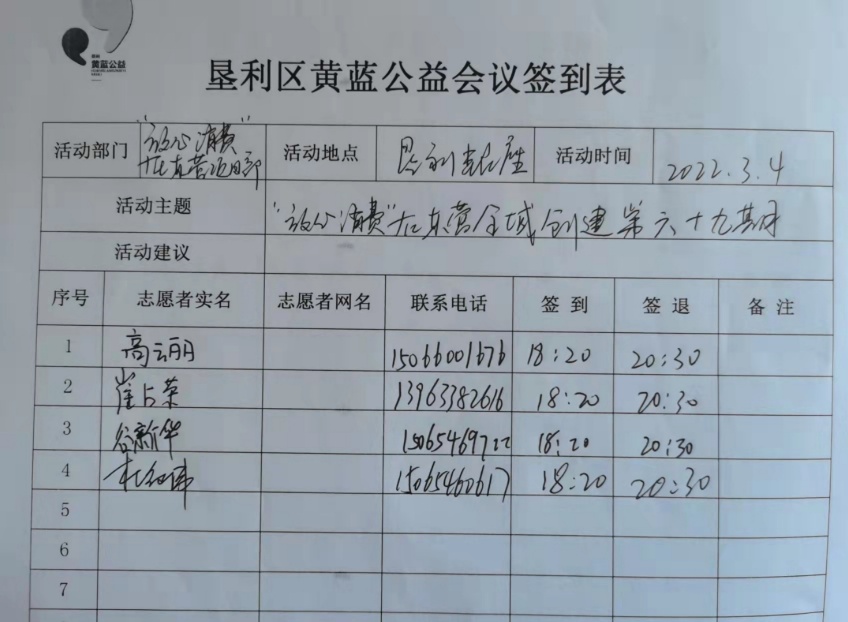 黄蓝公益
垦利区黄蓝公益会议签到表
活动部门 "放心消费" 在东营项目部 活动地点 垦利 活动时间 2022.3.4
活动主题 "放心消费"在东营全域创建第六十九期
活动建议
序号 志愿者实名 志愿者网名 联系电话 签到 签退 备注
1 高云丽 15066001676 18:20 20:30
2 崔占荣 13963382616 18:20 20:30
3 谷新华 15065469722 18:20 20:30
4 杜 15065460617 18:20 20:30
5
6
7